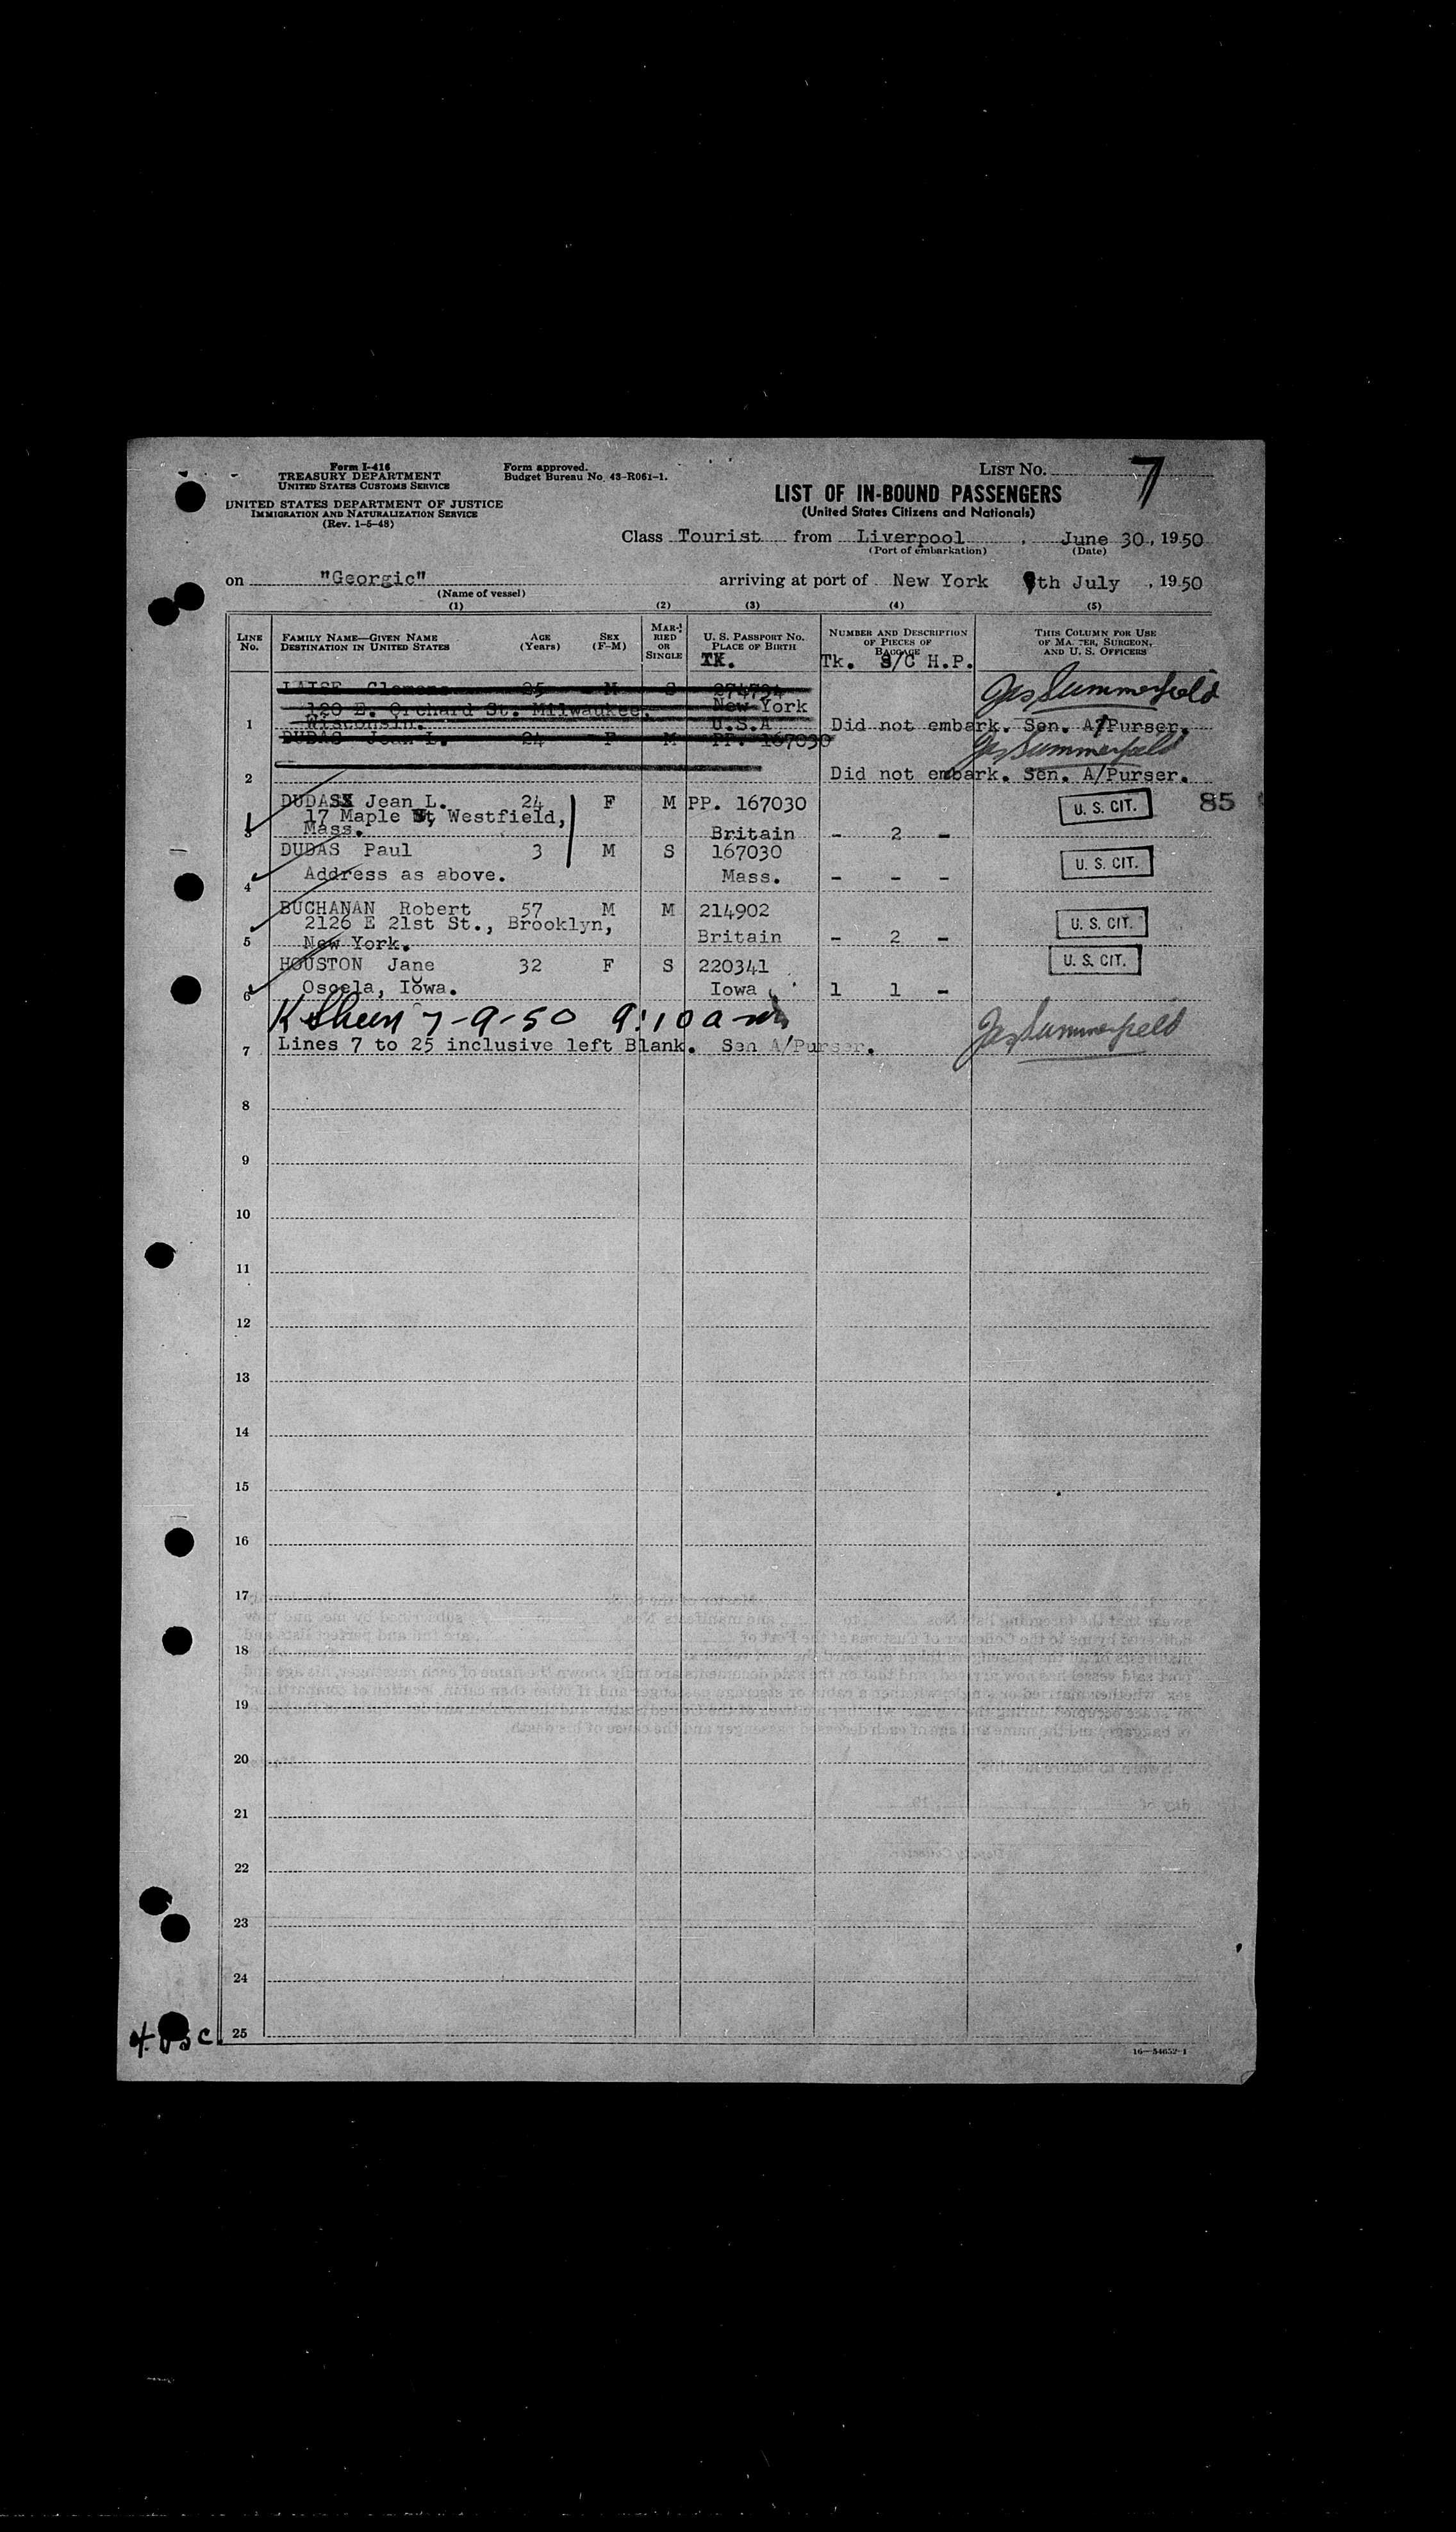 Form I-416
TREASURY DEPARTMENT
UNITED STATES CUSTOMS SERVICE
UNITED STATES DEPARTMENT OF JUSTICE
IMMIGRATION AND NATURALIZATION SERVICE
(Rev. 1-5-48)
Form approved.
Budget Bureau No. 43-R061-1.
LIST NO. 7
LIST OF IN-BOUND PASSENGERS
(United States Citizens and Nationals)
Class Tourist from Liverpool, June 30, 1950
(Port of embarkation) (Date)
on "Georgic" arriving at port of New York 9th July, 1950
(Name of vessel)
(1) (2) (3) (4) (5)
LINE No. FAMILY NAME—GIVEN NAME DESTINATION IN UNITED STATES AGE (Years) SEX (F-M) MARRIED OR SINGLE U. S. PASSPORT NO. PLACE OF BIRTH NUMBER AND DESCRIPTION OF PIECES OF BAGGAGE THIS COLUMN FOR USE OF MASTER, SURGEON, AND U. S. OFFICERS
TK. Tk. S/C H.P.
LAISE Clemens 25 M S 274794 Jas Summerfield
120 E. Orchard St. Milwaukee, New York
1 Wisconsin. U.S.A Did not embark. Sen. A/Purser.
DUDAS Jean L. 24 F M PP. 167030 Jas Summerfield
2 Did not embark. Sen. A/Purser.
DUDAS Jean L. 24 F M PP. 167030 U. S. CIT. 85
17 Maple St, Westfield,
3 Mass. Britain - 2 -
DUDAS Paul 3 M S 167030 U. S. CIT.
4 Address as above. Mass. - - -
BUCHANAN Robert 57 M M 214902 U. S. CIT.
2126 E 21st St., Brooklyn,
5 New York. Britain - 2 -
HOUSTON Jane 32 F S 220341 U. S. CIT.
6 Oscela, Iowa. Iowa 1 1 -
7-9-50 9:10 am
7 Lines 7 to 25 inclusive left Blank. Sen A/Purser. Jas Summerfield
8
9
10
11
12
13
14
15
16
17
18
19
20
21
22
23
24
25
16—54652-1